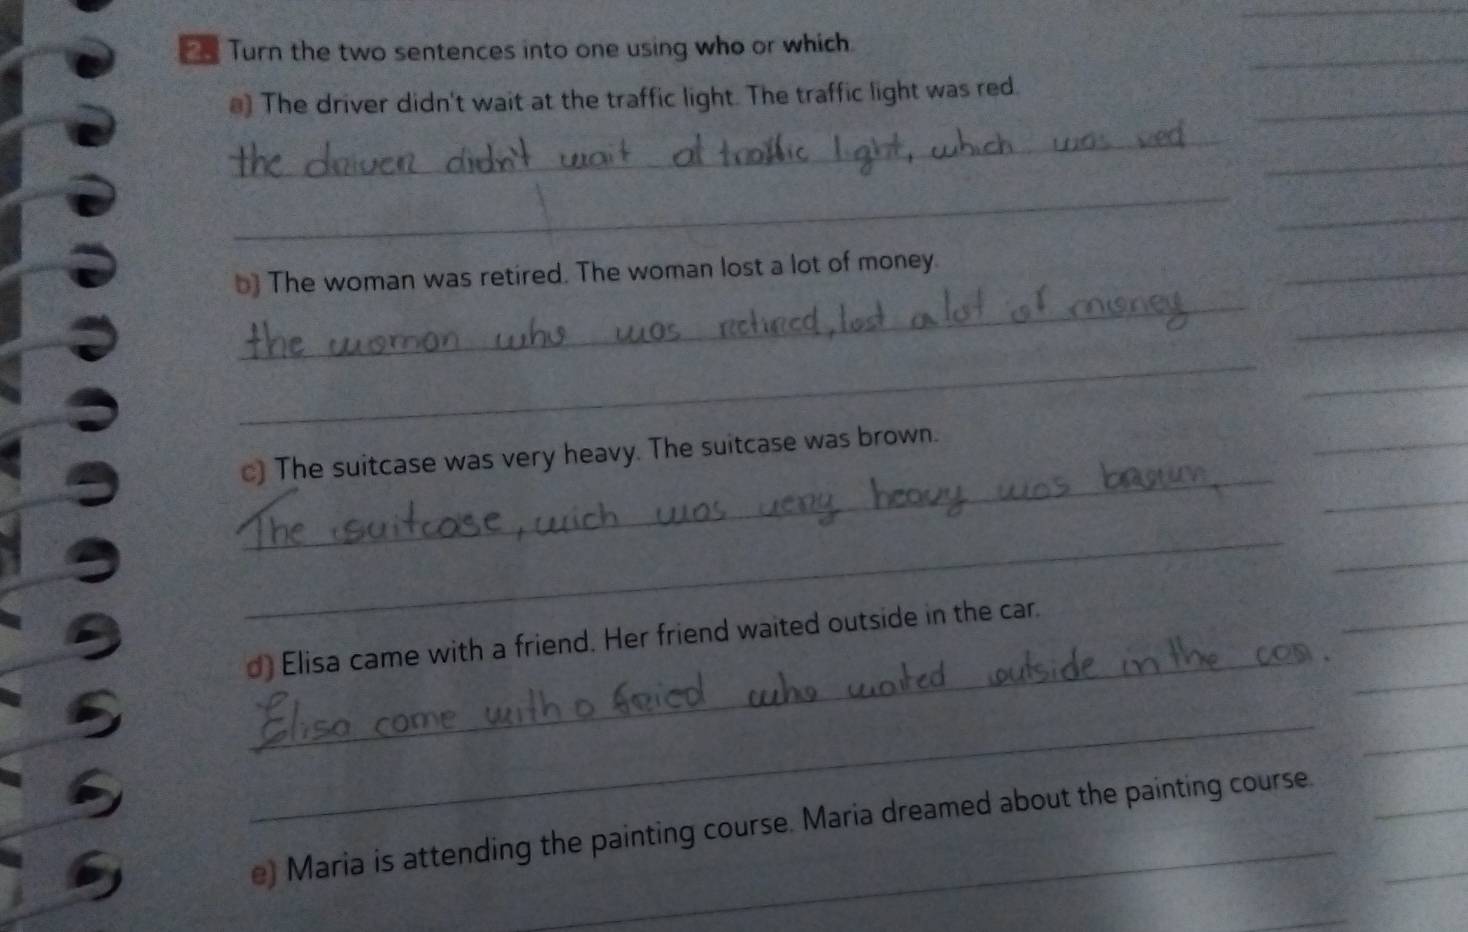 2. Turn the two sentences into one using who or which.
a) The driver didn't wait at the traffic light. The traffic light was red.
the driver didn't wait at traffic light, which was red
b) The woman was retired. The woman lost a lot of money.
the woman who was retired, lost a lot of money
c) The suitcase was very heavy. The suitcase was brown.
The suitcase, wich was very heavy was braun,
d) Elisa came with a friend. Her friend waited outside in the car.
Elisa come with a fricd who waited outside in the car.
e) Maria is attending the painting course. Maria dreamed about the painting course.